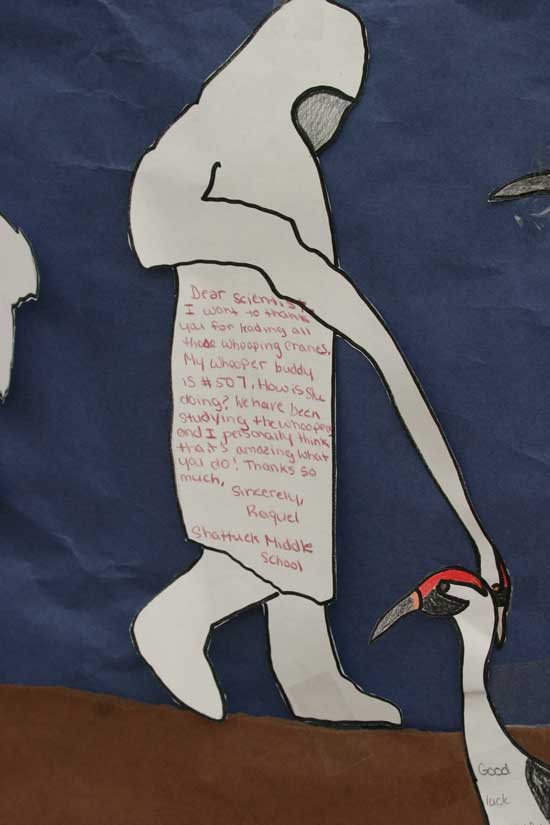 Dear scientist,
I want to thank
you for leading all
those whooping cranes.
My whooper buddy
is #507. How is she
doing? We have been
studying the whoopers
and I personally think
that's amazing what
you do! Thanks so
much,
Sincerely,
Raquel
Shattuck Middle
School
Good
luck